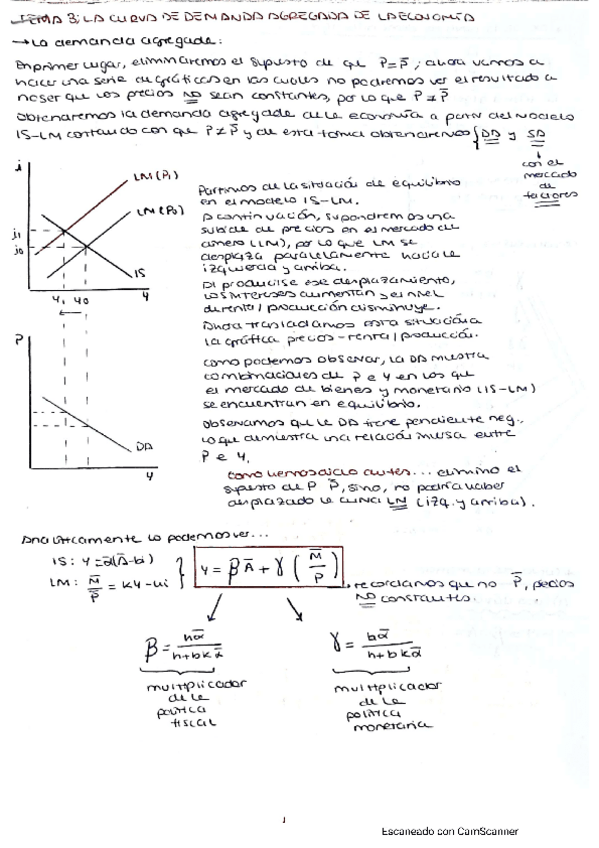 TEMA 3: LA CURVA DE DEMANDA AGREGADA DE LA ECONOMÍA
→ La demanda agregada:
En primer lugar, eliminaremos el supuesto de que P=P̄; ahora vamos a
hacer una serie de gráficas en las cuales no podremos ver el resultado a
no ser que los precios NO sean constantes, por lo que P≠P̄
Obtenaremos la demanda agregada de la economía a partir del modelo
IS-LM contando con que P≠P̄ y de esta forma obtendremos { DA y SA
↓
con el
mercado
de
factores
i
LM(P1)
LM(P0)
i1
i0
IS
Y1 Y0
Y
Partimos de la situación de equilibrio
en el modelo IS-LM.
A continuación, supondremos una
subida de precios en el mercado de
dinero (LM), por lo que LM se
desplaza paralelamente hacia la
izquierda y arriba.
Al producirse ese desplazamiento,
los intereses aumentan y el nivel
de renta/producción disminuye.
Ahora trasladamos esta situación a
la gráfica precios-renta/producción.
P
DA
Y
Como podemos observar, la DA muestra
combinaciones de P e Y en los que
el mercado de bienes y monetario (IS-LM)
se encuentran en equilibrio.
Observamos que la DA tiene pendiente neg.,
lo que demuestra una relación inversa entre
P e Y.
Como hemos dicho antes... elimino el
supuesto de P P̄, sino, no podría haber
desplazado la curva LM (izq. y arriba).
Analíticamente lo podemos ver...
IS: Y=ᾱ(Ā-bi)
LM: M̄/P̄ = KY-hi
} Y = βĀ + γ (M̄/P)
, recordamos que no P̄, precios
NO constantes.
β = hᾱ/h+bkᾱ
γ = bᾱ/h+bkᾱ
multiplicador
de la
política
fiscal
multiplicador
de la
política
monetaria
1
Escaneado con CamScanner